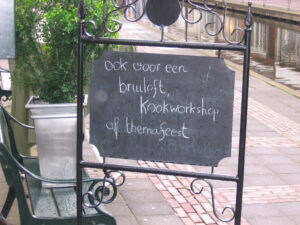 ook voor een
bruiloft,
Kookworkshop
of themafeest